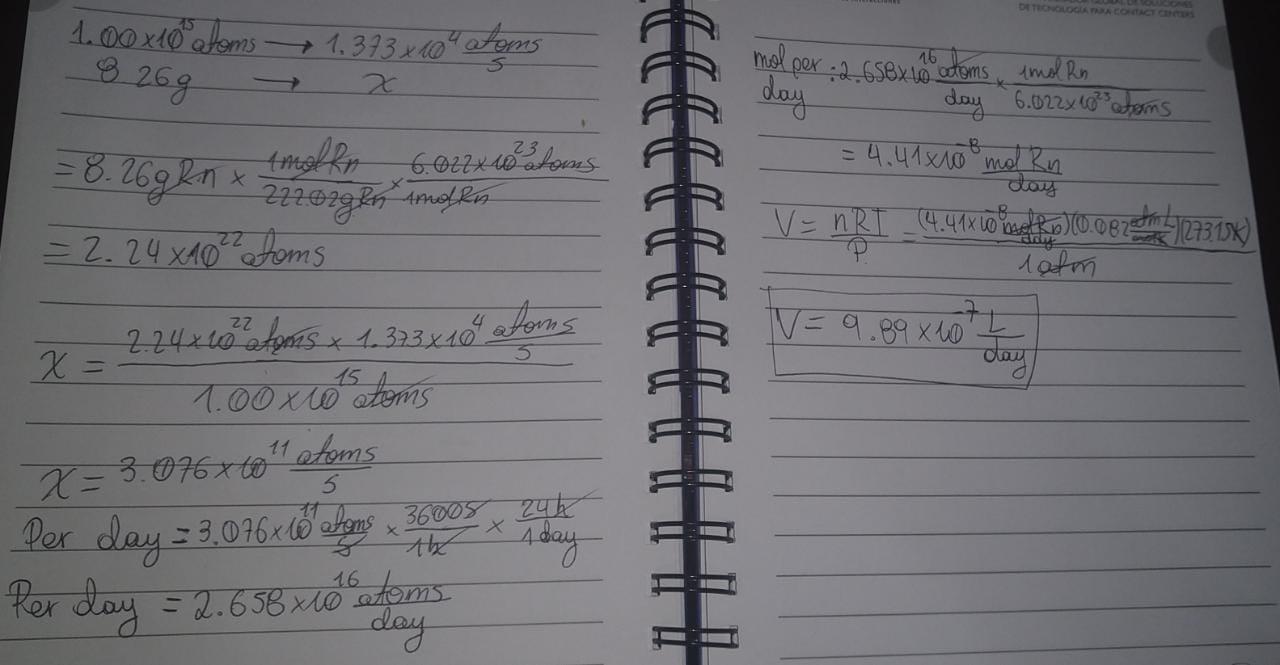 1.00x10^15 atoms → 1.373x10^4 atoms/s
8.26g → x
= 8.26gRn x 1molRn/222.02gRn x 6.022x10^23 atoms/1molRn
= 2.24x10^22 atoms
x = 2.24x10^22 atoms x 1.373x10^4 atoms/s / 1.00x10^15 atoms
x = 3.076x10^11 atoms/s
Per day = 3.076x10^11 atoms/s x 3600s/1h x 24h/1day
Per day = 2.658x10^16 atoms/day
DE TECNOLOGÍA PARA CONTACT CENTERS
mol per day : 2.658x10^16 atoms/day x 1molRn/6.022x10^23 atoms
= 4.41x10^-8 mol Rn/day
V = nRT/P = (4.41x10^-8 molRn/day)(0.082 atmL/molK)(273.15K)/1atm
V = 9.89x10^-7 L/day